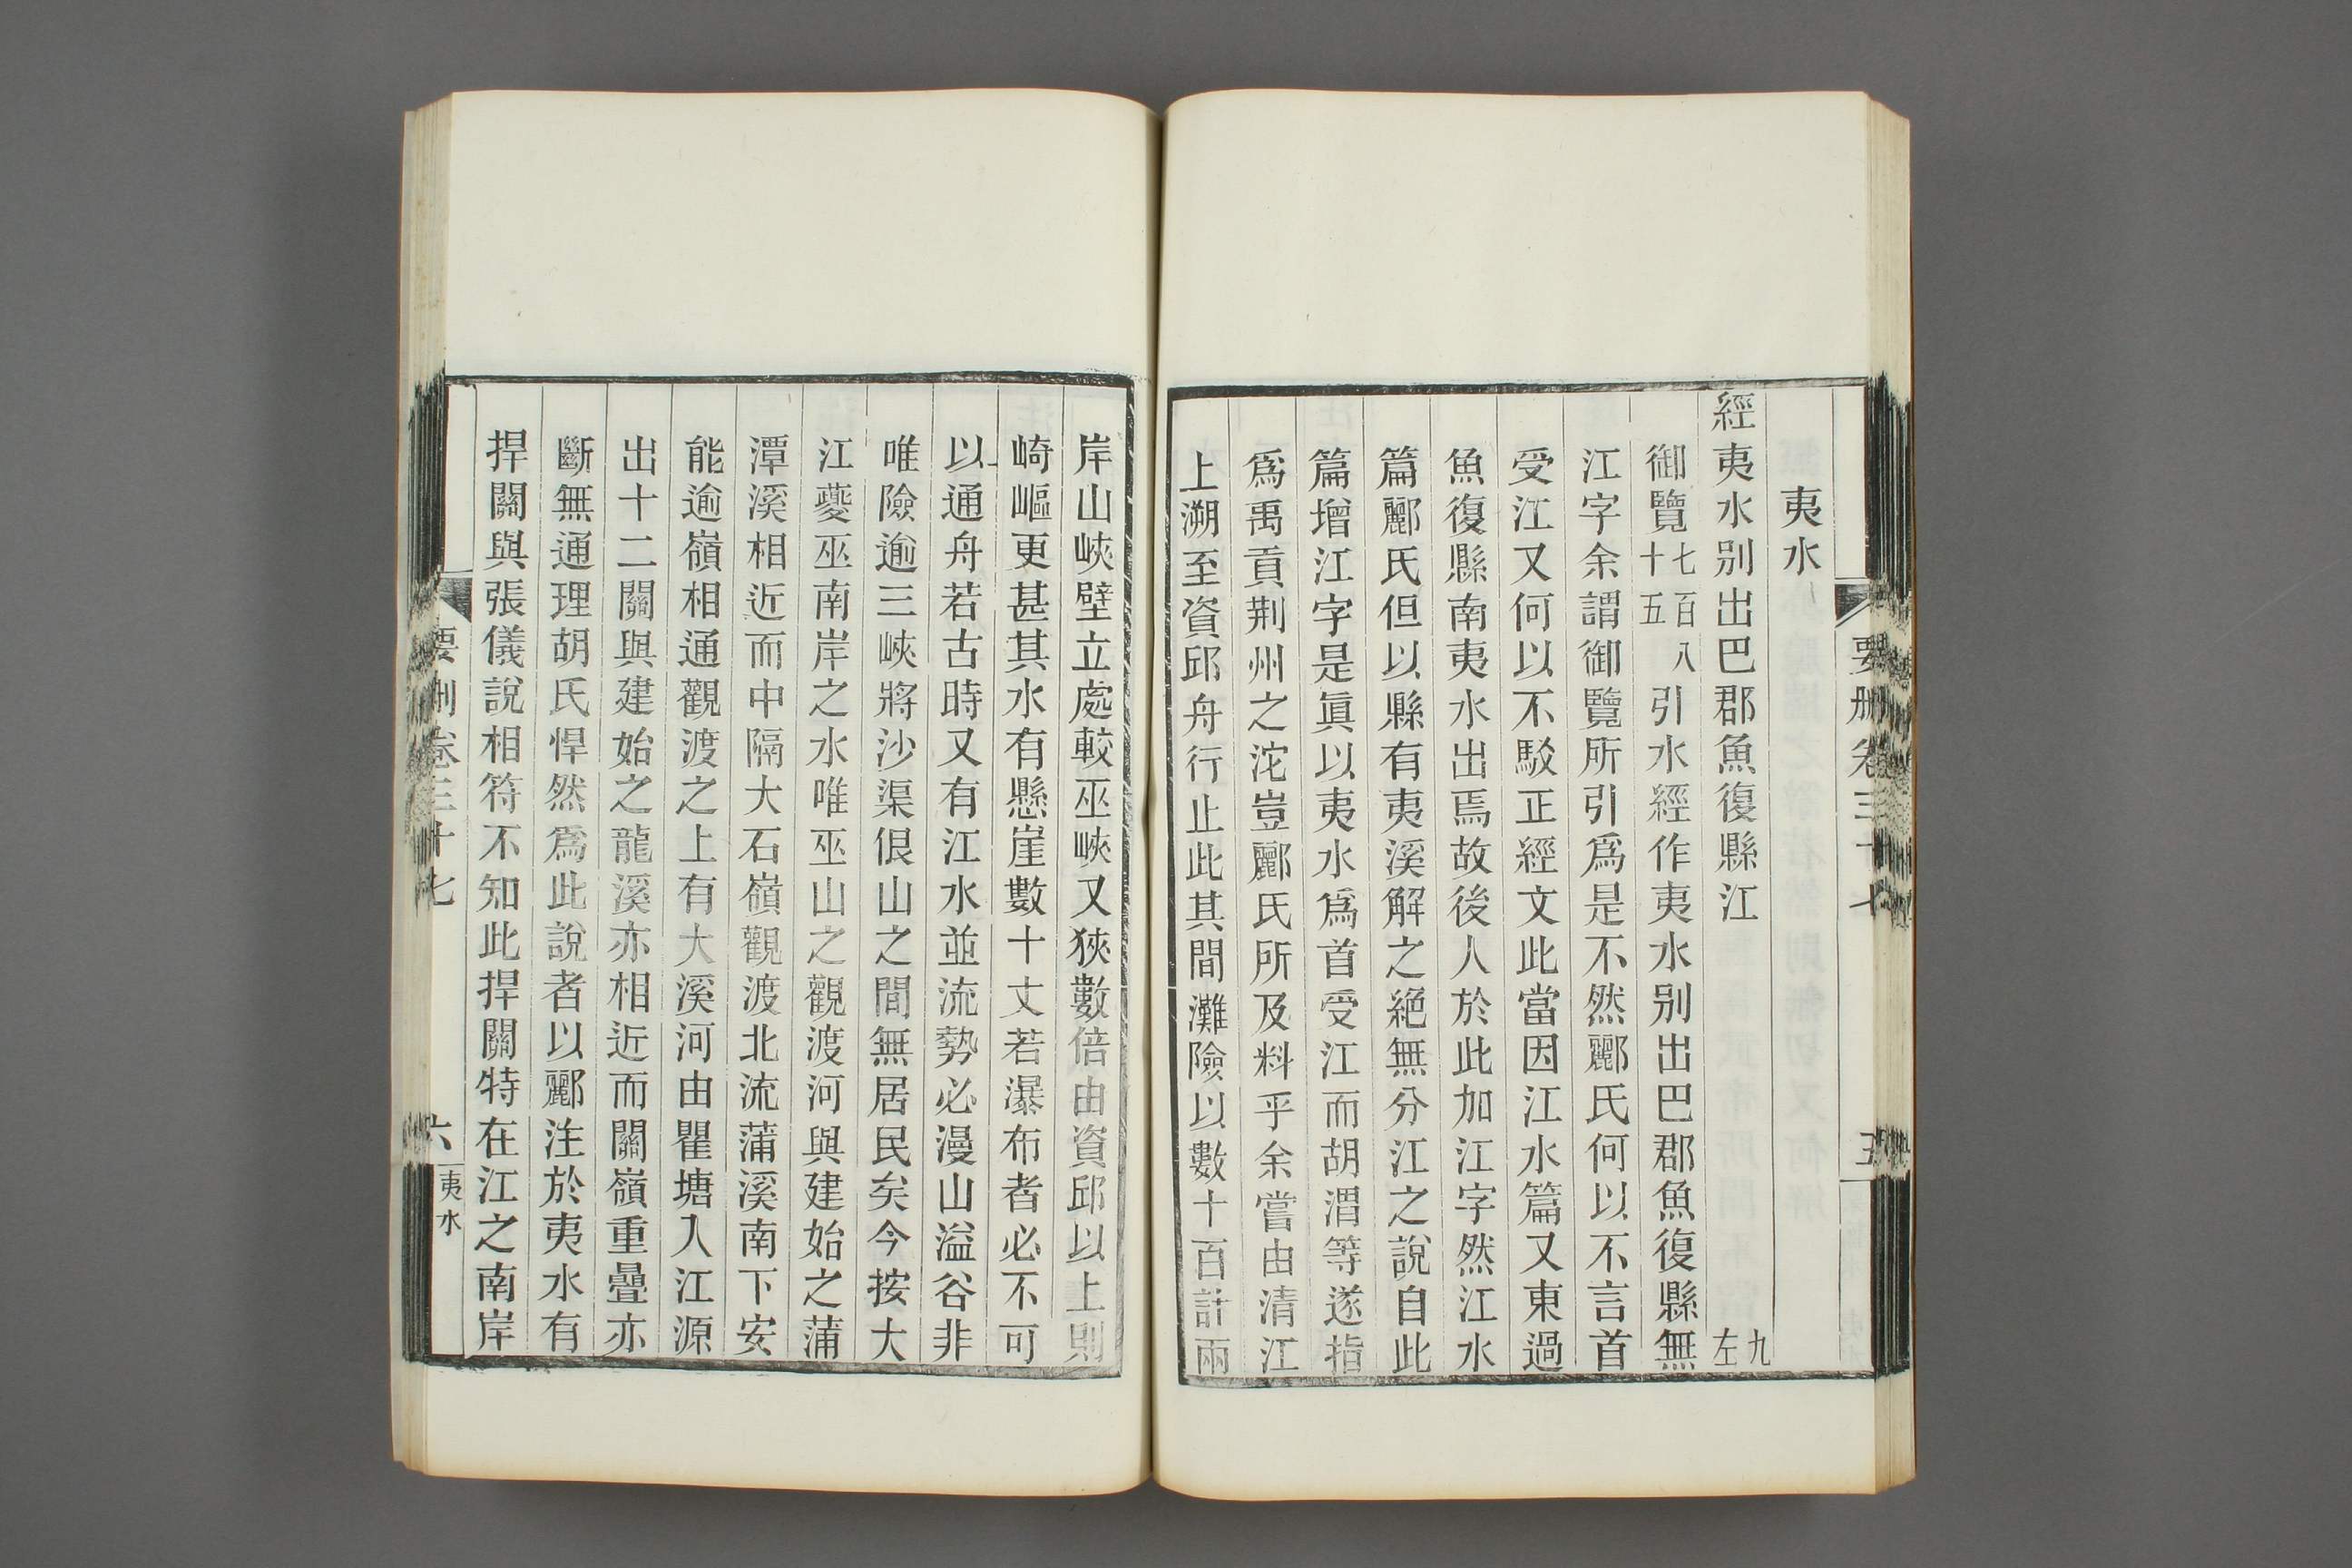 夷水
經夷水别出巴郡魚復縣江 九左
御覽七百八十五引水經作夷水别出巴郡魚復縣無
江字余謂御覽所引爲是不然酈氏何以不言首
受江又何以不駁正經文此當因江水篇又東過
魚復縣南夷水出焉故後人於此加江字然江水
篇酈氏但以縣有夷溪解之絕無分江之說自此
篇增江字是眞以夷水爲首受江而胡渭等遂指
爲禹貢荆州之沱豈酈氏所及料乎余嘗由清江
上溯至資邱舟行止此其間灘險以數十百計兩
要刪卷三十七
五
岸山峽壁立處較巫峽又狹數倍由資邱以上則
崎嶇更甚其水有懸崖數十丈若瀑布者必不可
以通舟若古時又有江水並流勢必漫山溢谷非
唯險逾三峽將沙渠佷山之間無居民矣今按大
江夔巫南岸之水唯巫山之觀渡河與建始之蒲
潭溪相近而中隔大石嶺觀渡北流蒲溪南下安
能逾嶺相通觀渡之上有大溪河由瞿塘入江源
出十二關與建始之龍溪亦相近而關嶺重疊亦
斷無通理胡氏悍然爲此說者以酈注於夷水有
捍關與張儀說相符不知此捍關特在江之南岸
要刪卷三十七
六
夷水